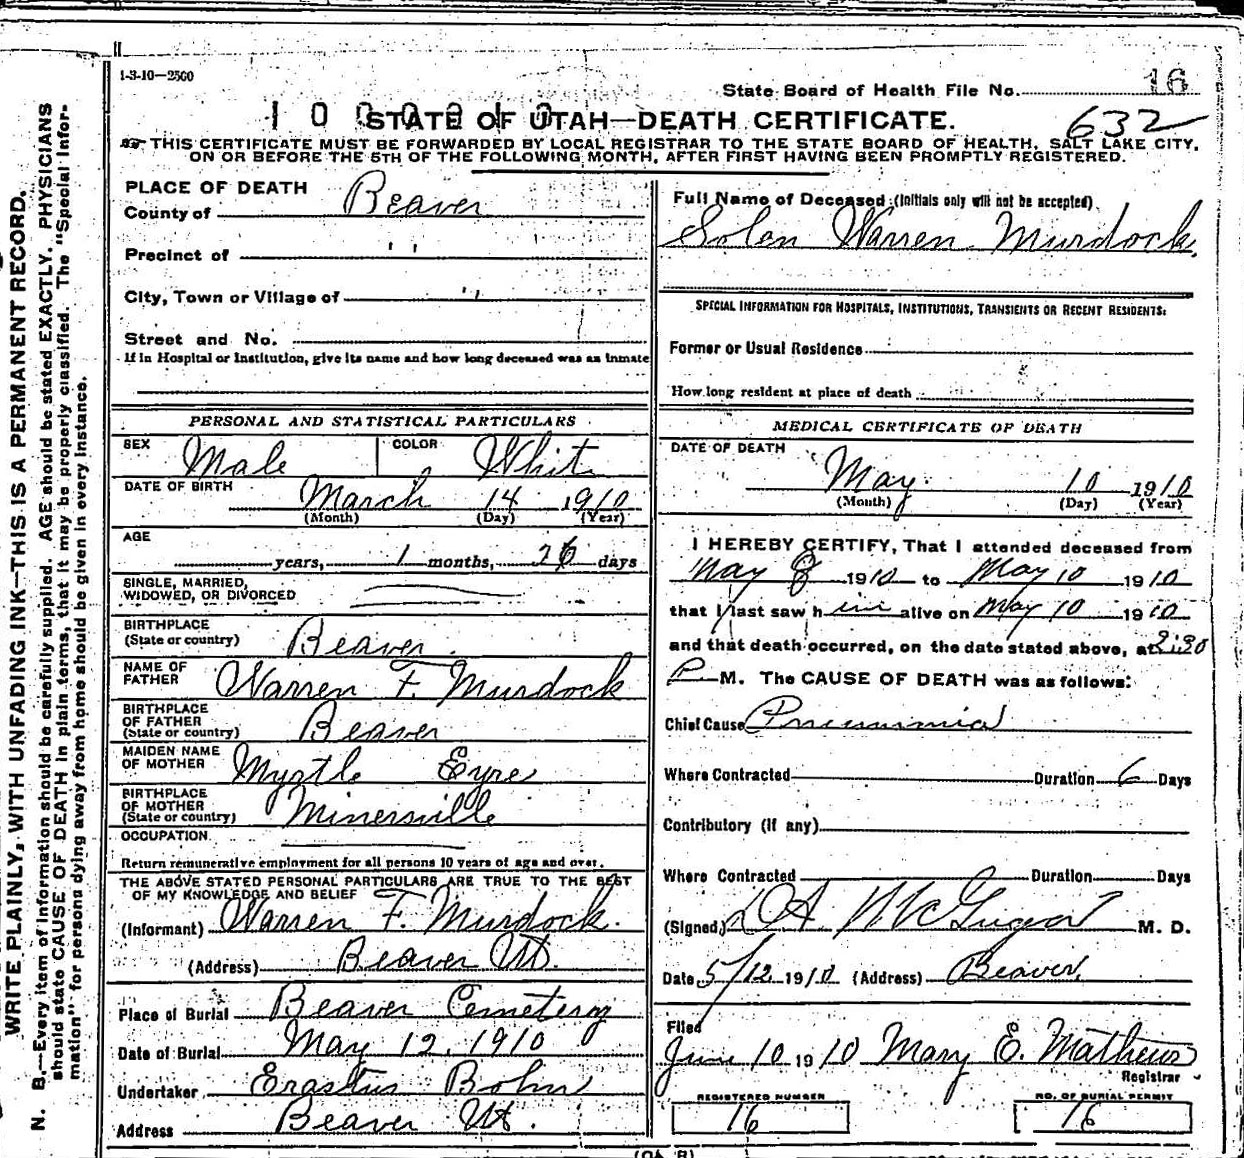 1-3-10—2500
State Board of Health File No. 16
STATE OF UTAH—DEATH CERTIFICATE.
632
THIS CERTIFICATE MUST BE FORWARDED BY LOCAL REGISTRAR TO THE STATE BOARD OF HEALTH, SALT LAKE CITY,
ON OR BEFORE THE 5TH OF THE FOLLOWING MONTH, AFTER FIRST HAVING BEEN PROMPTLY REGISTERED.
WRITE PLAINLY, WITH UNFADING INK—THIS IS A PERMANENT RECORD.
N. B.—Every item of information should be carefully supplied. AGE should be stated EXACTLY. PHYSICIANS
should state CAUSE OF DEATH in plain terms, that it may be properly classified. The "Special Infor-
mation" for persons dying away from home should be given in every instance.
PLACE OF DEATH
County of Beaver
Precinct of ''
City, Town or Village of ''
Street and No.
If in Hospital or Institution, give its name and how long deceased was an inmate
PERSONAL AND STATISTICAL PARTICULARS
SEX Male COLOR White
DATE OF BIRTH March 14 1910
(Month) (Day) (Year)
AGE
years, 1 months, 26 days
SINGLE, MARRIED,
WIDOWED, OR DIVORCED
BIRTHPLACE
(State or country) Beaver.
NAME OF
FATHER Warren F. Murdock
BIRTHPLACE
OF FATHER
(State or country) Beaver
MAIDEN NAME
OF MOTHER Myrtle Eyre
BIRTHPLACE
OF MOTHER
(State or country) Minersville
OCCUPATION
Return remunerative employment for all persons 10 years of age and over.
THE ABOVE STATED PERSONAL PARTICULARS ARE TRUE TO THE BEST
OF MY KNOWLEDGE AND BELIEF
(Informant) Warren F. Murdock.
(Address) Beaver Ut.
Place of Burial Beaver Cemetery
Date of Burial May 12, 1910
Undertaker Erastus Bohn
Address Beaver Ut.
Full Name of Deceased (Initials only will not be accepted)
Solon Warren Murdock,
SPECIAL INFORMATION FOR HOSPITALS, INSTITUTIONS, TRANSIENTS OR RECENT RESIDENTS:
Former or Usual Residence
How long resident at place of death
MEDICAL CERTIFICATE OF DEATH
DATE OF DEATH May 10 1910
(Month) (Day) (Year)
I HEREBY CERTIFY, That I attended deceased from
May 8 1910 to May 10 1910
that I last saw him alive on May 10 1910
and that death occurred, on the date stated above, at 2:30
P M. The CAUSE OF DEATH was as follows:
Chief Cause Pneumonia
Where Contracted Duration 6 Days
Contributory (if any)
Where Contracted Duration Days
(Signed) M. D.
Date 5/12 1910 (Address) Beaver,
Filed
June 10 1910 Mary E. Mathews
Registrar
REGISTERED NUMBER
16
NO. OF BURIAL PERMIT
16